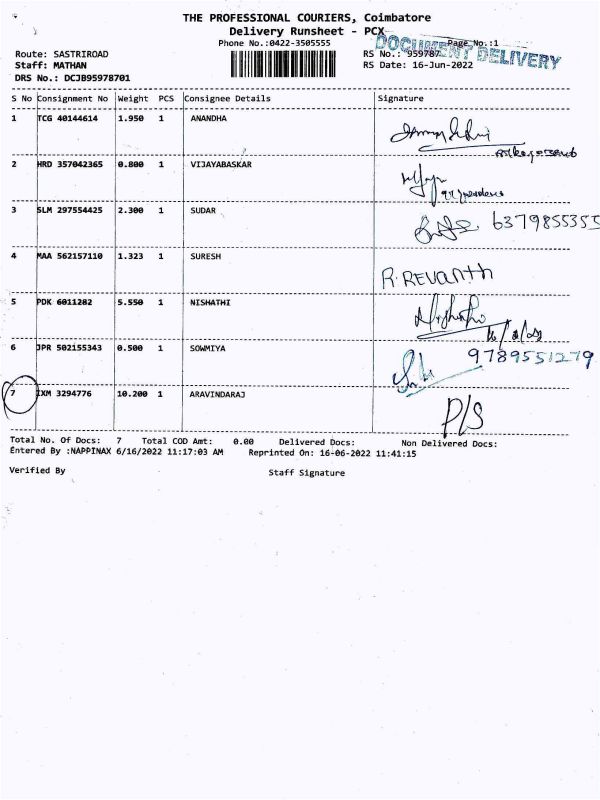 THE PROFESSIONAL COURIERS, Coimbatore
Delivery Runsheet - PCX
Phone No.:0422-3505555
Page No.:1
DOCUMENT DELIVERY
Route: SASTRIROAD
RS No.: 959787
Staff: MATHAN
RS Date: 16-Jun-2022
DRS No.: DCJB95978701
S No Consignment No Weight PCS Consignee Details Signature
1 TCG 40144614 1.950 1 ANANDHA
2 HRD 357042365 0.800 1 VIJAYABASKAR
3 SLM 297554425 2.300 1 SUDAR 6379855355
4 MAA 562157110 1.323 1 SURESH R. REVANTH
5 PDK 6011282 5.550 1 NISHATHI
6 JPR 502155343 0.500 1 SOWMIYA 9789551279
7 IXM 3294776 10.200 1 ARAVINDARAJ P/S
Total No. Of Docs: 7 Total COD Amt: 0.00 Delivered Docs: Non Delivered Docs:
Entered By :NAPPINAX 6/16/2022 11:17:03 AM Reprinted On: 16-06-2022 11:41:15
Verified By Staff Signature